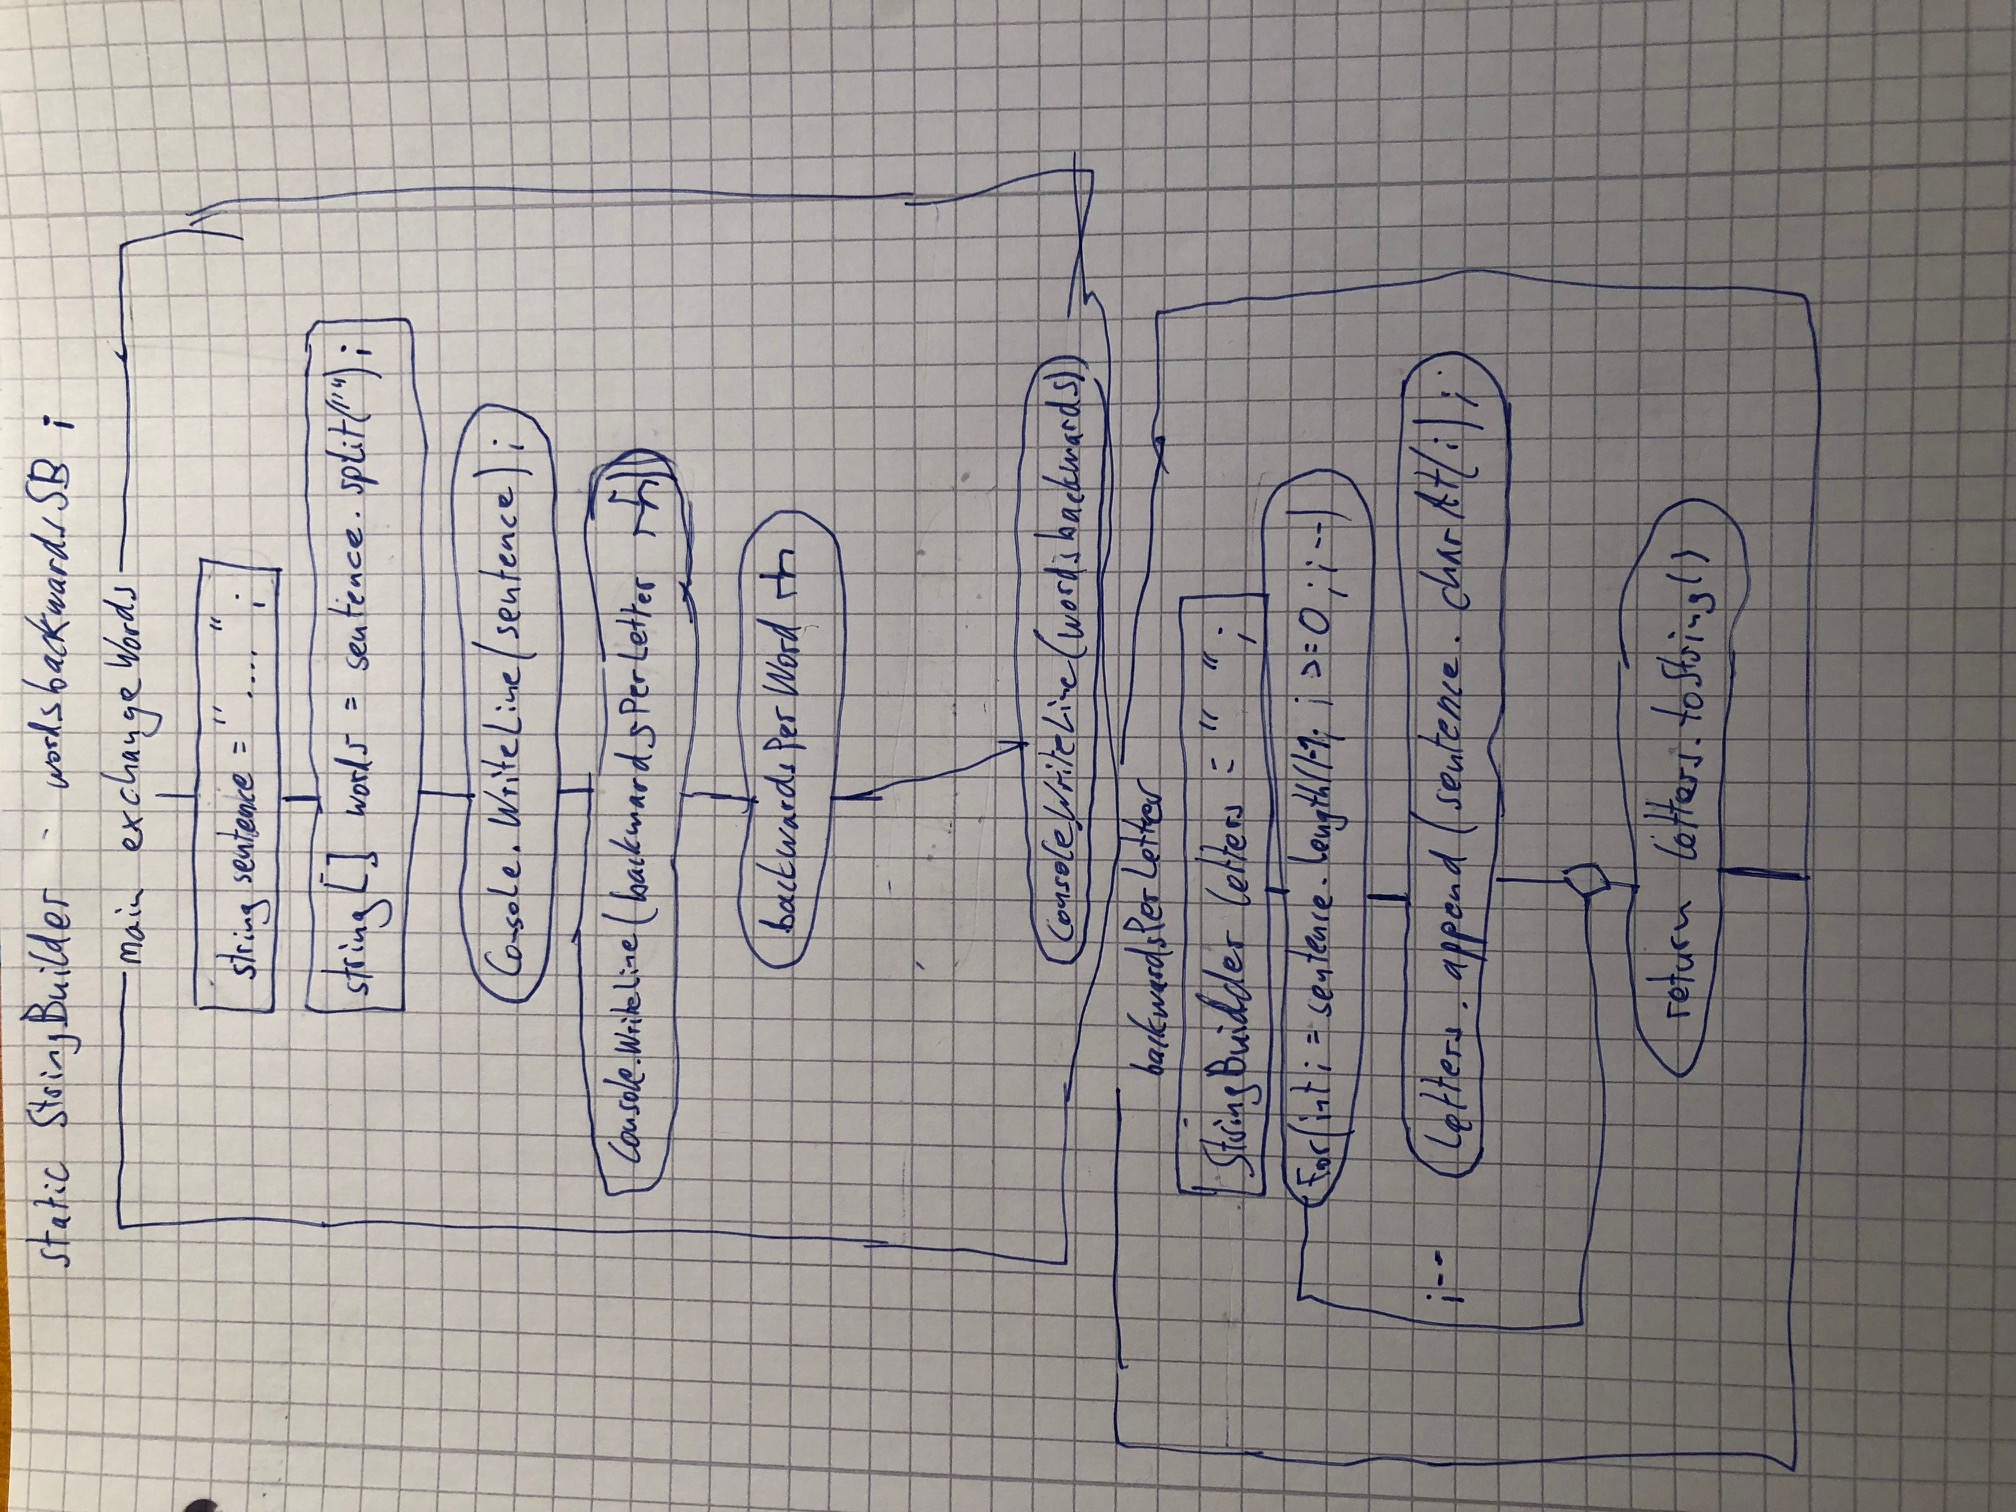 static StringBuilder wordsbackwardsSB ;
main exchangeWords
string sentence = "...." ;
string [] words = sentence. split(" ") ;
Console.WriteLine(sentence) ;
Console.WriteLine(backwardsPerLetter ))
backwardsPerWord
Console.WriteLine(wordsbackwards)
backwardsPerLetter
StringBuilder letters = " " ;
For(int i = sentence.length()-1; i >= 0 ; i--)
i--
letters. append (sentence. charAt(i) ;
return letters.toString()